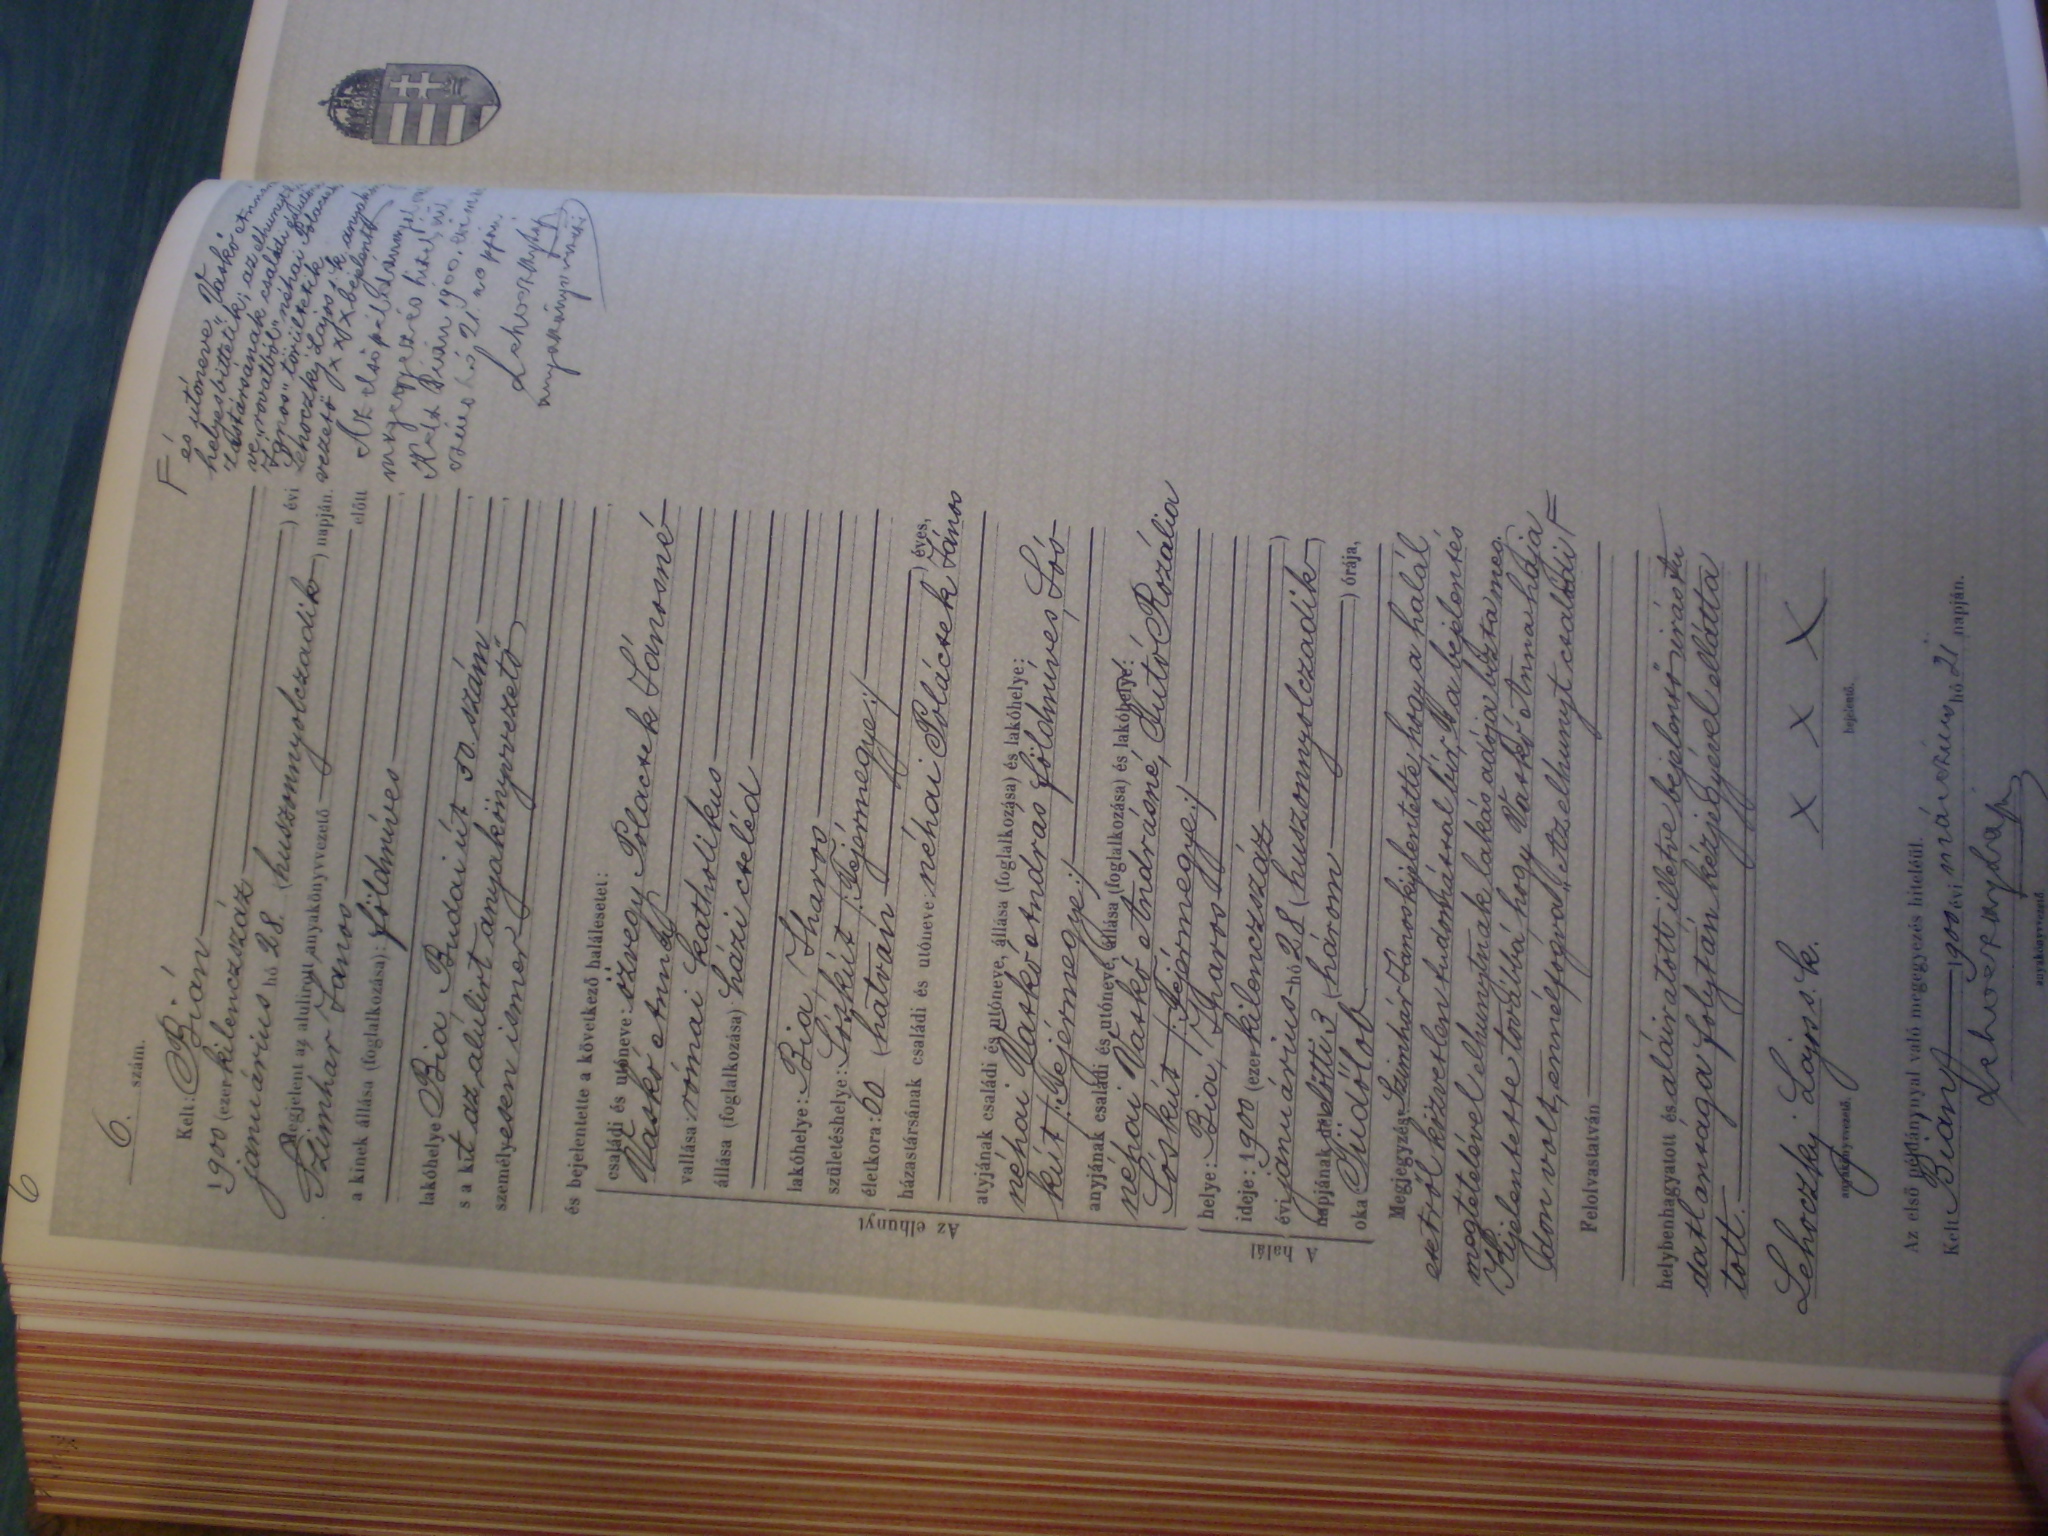 6
6. szám.
Kelt: Bián
1900 (ezer kilenczszáz) évi
január​ius hó 28. (huszonnyolczadik) napján.
Megjelent az alulirott anyakönyvvezető előtt
Szimhár János
a kinek állása (foglalkozása): földmíves
lakóhelye Bia Budai út 50. szám
s a kit az alulírt anyakönyvvezető
személyesen ismer
és bejelentette a következő halálesetet:
Az elhunyt
családi és utóneve: özvegy Polacsek Jánosné
Vaskó Anna
vallása: római katholikus
állása (foglalkozása): házi cseléd
lakóhelye: Bia, Tharos
születéshelye: Sóskút /:Fejérmegye:/
életkora: 60 (hatvan) éves,
házastársának családi és utóneve: néhai Polácsek János
atyjának családi és utóneve, állása (foglalkozása) és lakóhelye:
néhai Vaskó András földmíves, Sós-
kút /:Fejérmegye:/
anyjának családi és utóneve, állása (foglalkozása) és lakóhelye:
néhai Vaskó Andrásné, Sutó Rozália
Sóskút /:Fejérmegye:/
A halál
helye: Bia, Tharos
ideje: 1900 (ezer kilenczszáz)
évi január​ius hó 28 (huszonnyolczadik)
napjának délőtti 3 (három) órája,
oka Tüdőlob
Megjegyzés: Szimhár János kijelentette, hogy a halál
esetről közvetlen tudomással bír. A bejelentés
megtételével elhunytnak lakásadója bízta meg.
Bejelentette továbbá hogy Vaskó Anna hája
don volt, ennélfogva: Az elhunyt családi F
Felolvastatván
helybenhagyatott és aláiratott illetve bejelentő irástu
datlansága folytán kézjegyével ellátta
tott.
Lehoczky Lajos s. k. x x x
anyakönyvvezető. bejelentő.
Az első példánynyal való megegyezés hiteléül.
Kelt Bián 1900 évi március hó 21 napján.
Lehoczky Lajos
anyakönyvvezető
F
és utóneve "Vaskó Anna
helyesbíttetik; az elhunyt há
zastársának családi és utóne
ve" rovatból "néhai Polacsek
János" töröltetik
Lehoczky Lajos s. k. anyakönyv
vezető x x x bejelentő
Az első példánnyal való
megegyezés hiteléül
Kelt Bián 1900. évi má
rcius hó 21. napján.
Lehoczky Lajos
anyakönyvvezető